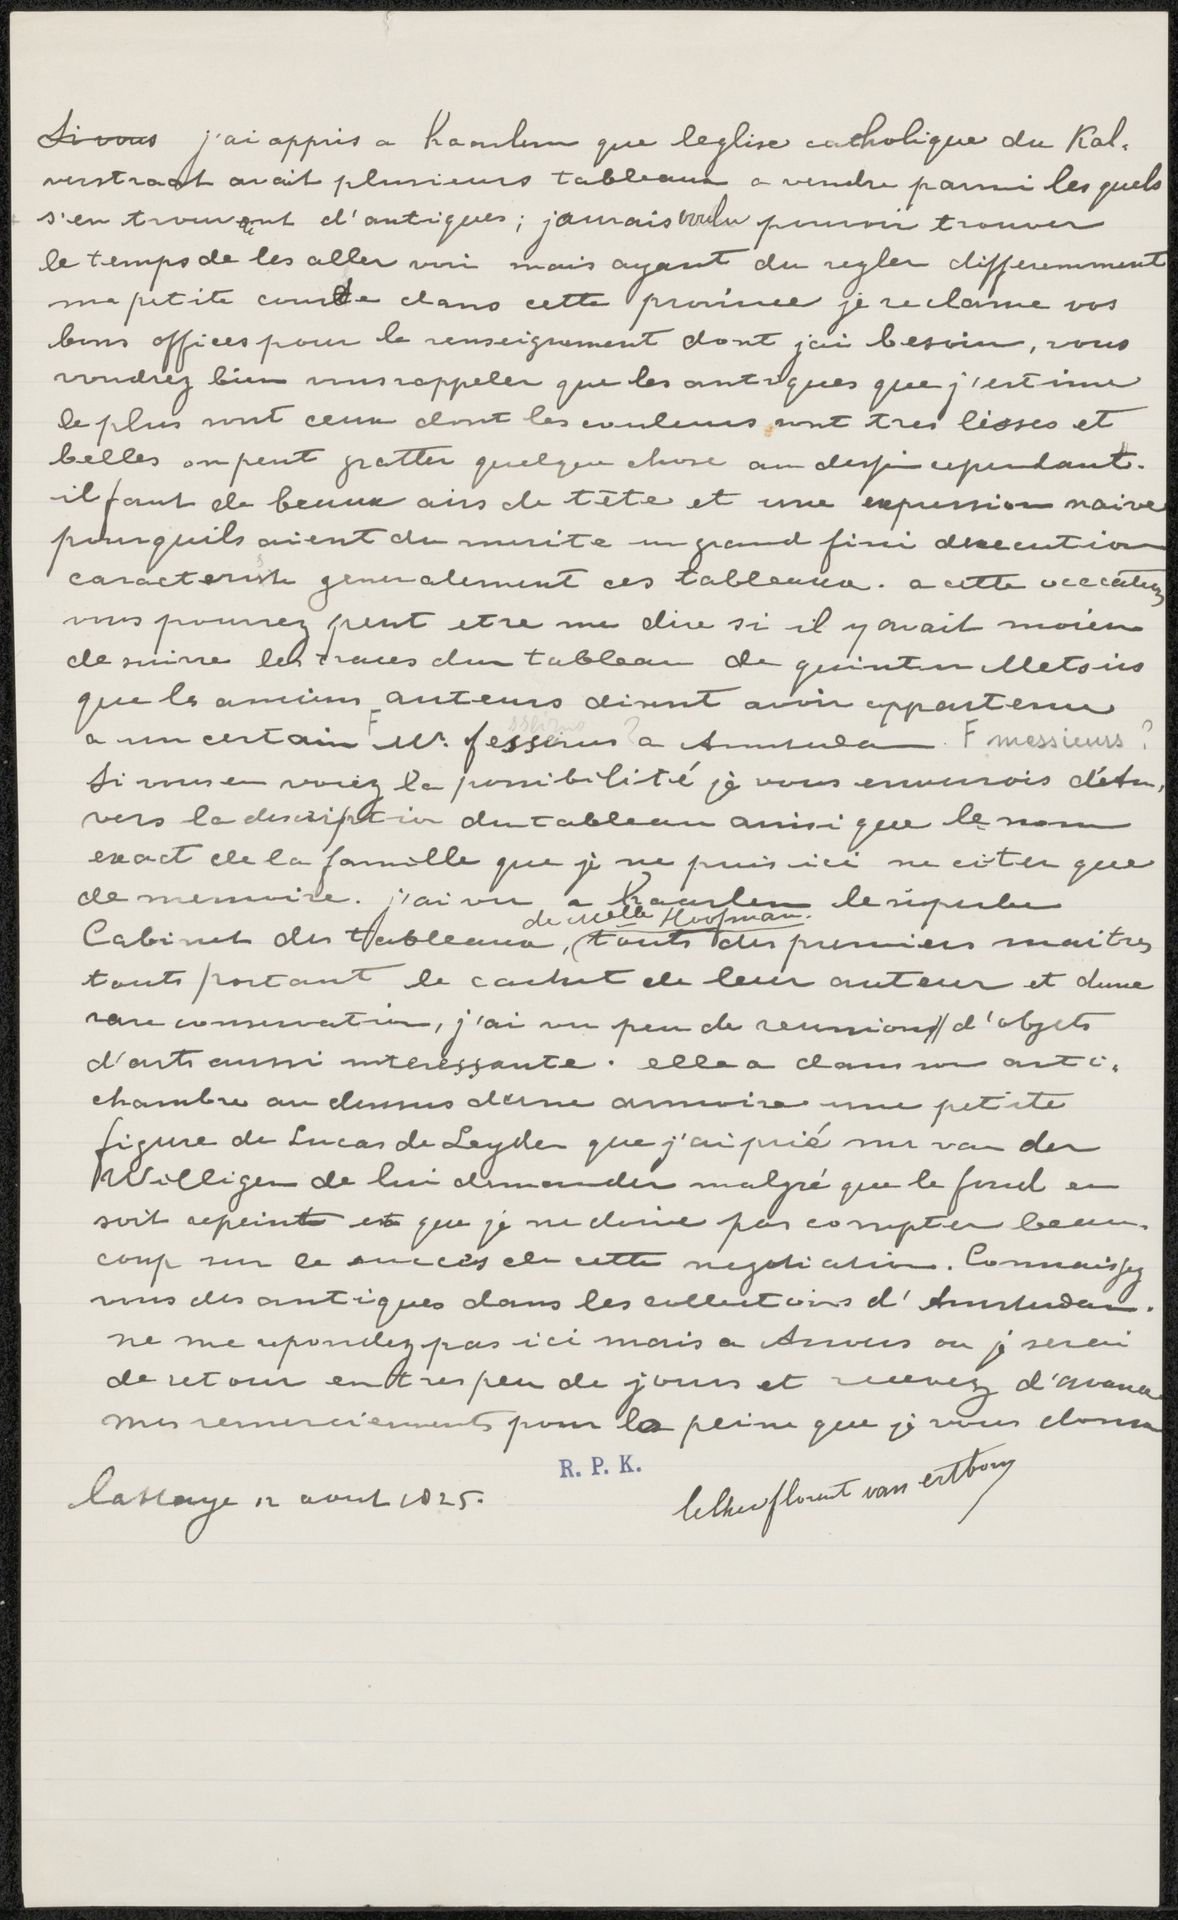 Si vous j'ai appris a Haarlem que leglise catholique du Kal.
verstraat avait plusieurs tableaux a vendre parmi les quels
s'en trouvaient d'antiques; jaurais voulu pouvoir trouver
le temps de les aller voir mais ayant du regler differemment
ma petite course dans cette province je reclame vos
bons offices pour le renseignement dont jai besoin, vous
voudrez bien vous rappeler que les antiques que j'estime
le plus sont ceux dont les couleurs sont tres lisses et
belles on peut gratter quelque chose au dessin cependant.
il faut de beaux airs de tête et une expression naive
pourquils aient du merite un grand fini dexecution
caracterise generalement ces tableaux. a cette occcation
vous pourrez peut etre me dire si il y avait moien
de suivre les traces dun tableau de quinten Metsiis
que les anciens auteurs disent avoir appartenu
a un certain F Mr. fesserus ? a Amsterdam F messieurs ?
Si vous en voiez la possibilité je vous enverrois d'An,
vers la description du tableau ainsi que le nom
exact de la famille que je ne puis ici ne citer que
de memoire. j'ai vu a Haarlem le superbe
de Melle Hoofman.
Cabinet des tableaux, touts des premiers maitres
touts portant le cachet de leur auteur et dune
rare conservation, j'ai vu peu de reunions d'objets
d'arts aussi interessante. elle a dans son anti.
chambre au dessus d'une armoire une petite
figure de Lucas de Leyden que j'ai prié mr van der
Willigen de lui demander malgré que le fond en
soit repeint et que je ne doive pas compter beau.
coup sur le succès de cette negotiation. Connaissez
vous des antiques dans les collections d'Amsterdam.
ne me repondez pas ici mais a Anvers ou je serai
de retour en tres peu de jours et recevez d'avance
mes remerciements pour la peine que je vous donne
R. P. K.
la Haye 12 aout 1825.
le Chev florent van ertborn